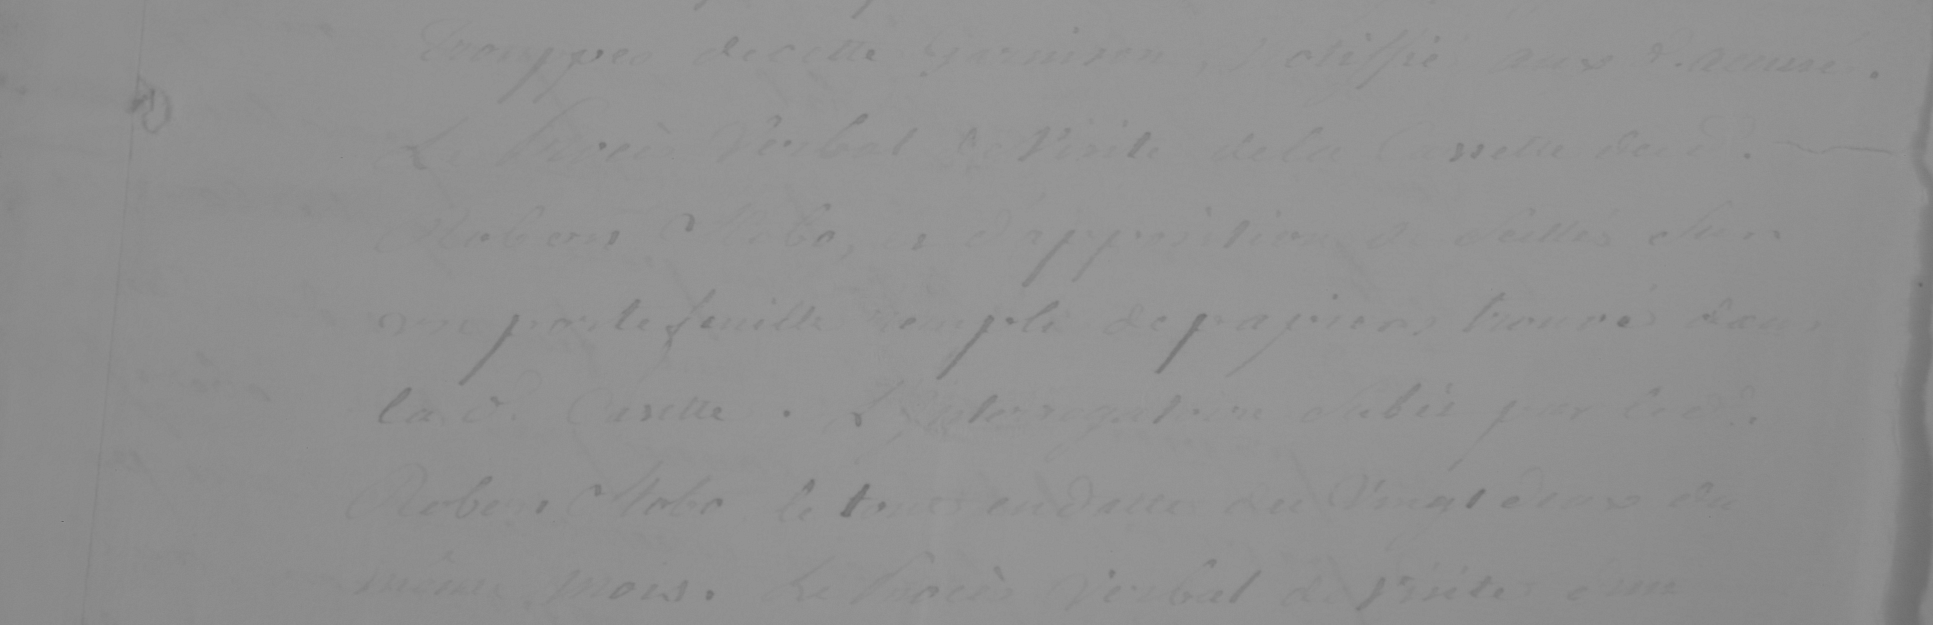 Trouppes de cette Garnison, Notiffié aux d. accusés.
Le Procès Verbal de Visite de la Cassette dud.
Robert Stobo, et d'apposition de scellés sur
un porte feuille rempli de papiers trouvé dans
la d. Casette. L'Interrogatoire subis par led.
Robert Stobo le tout en datte du Vingt deux du
même mois. Le Procès Verbal de Visite d'un